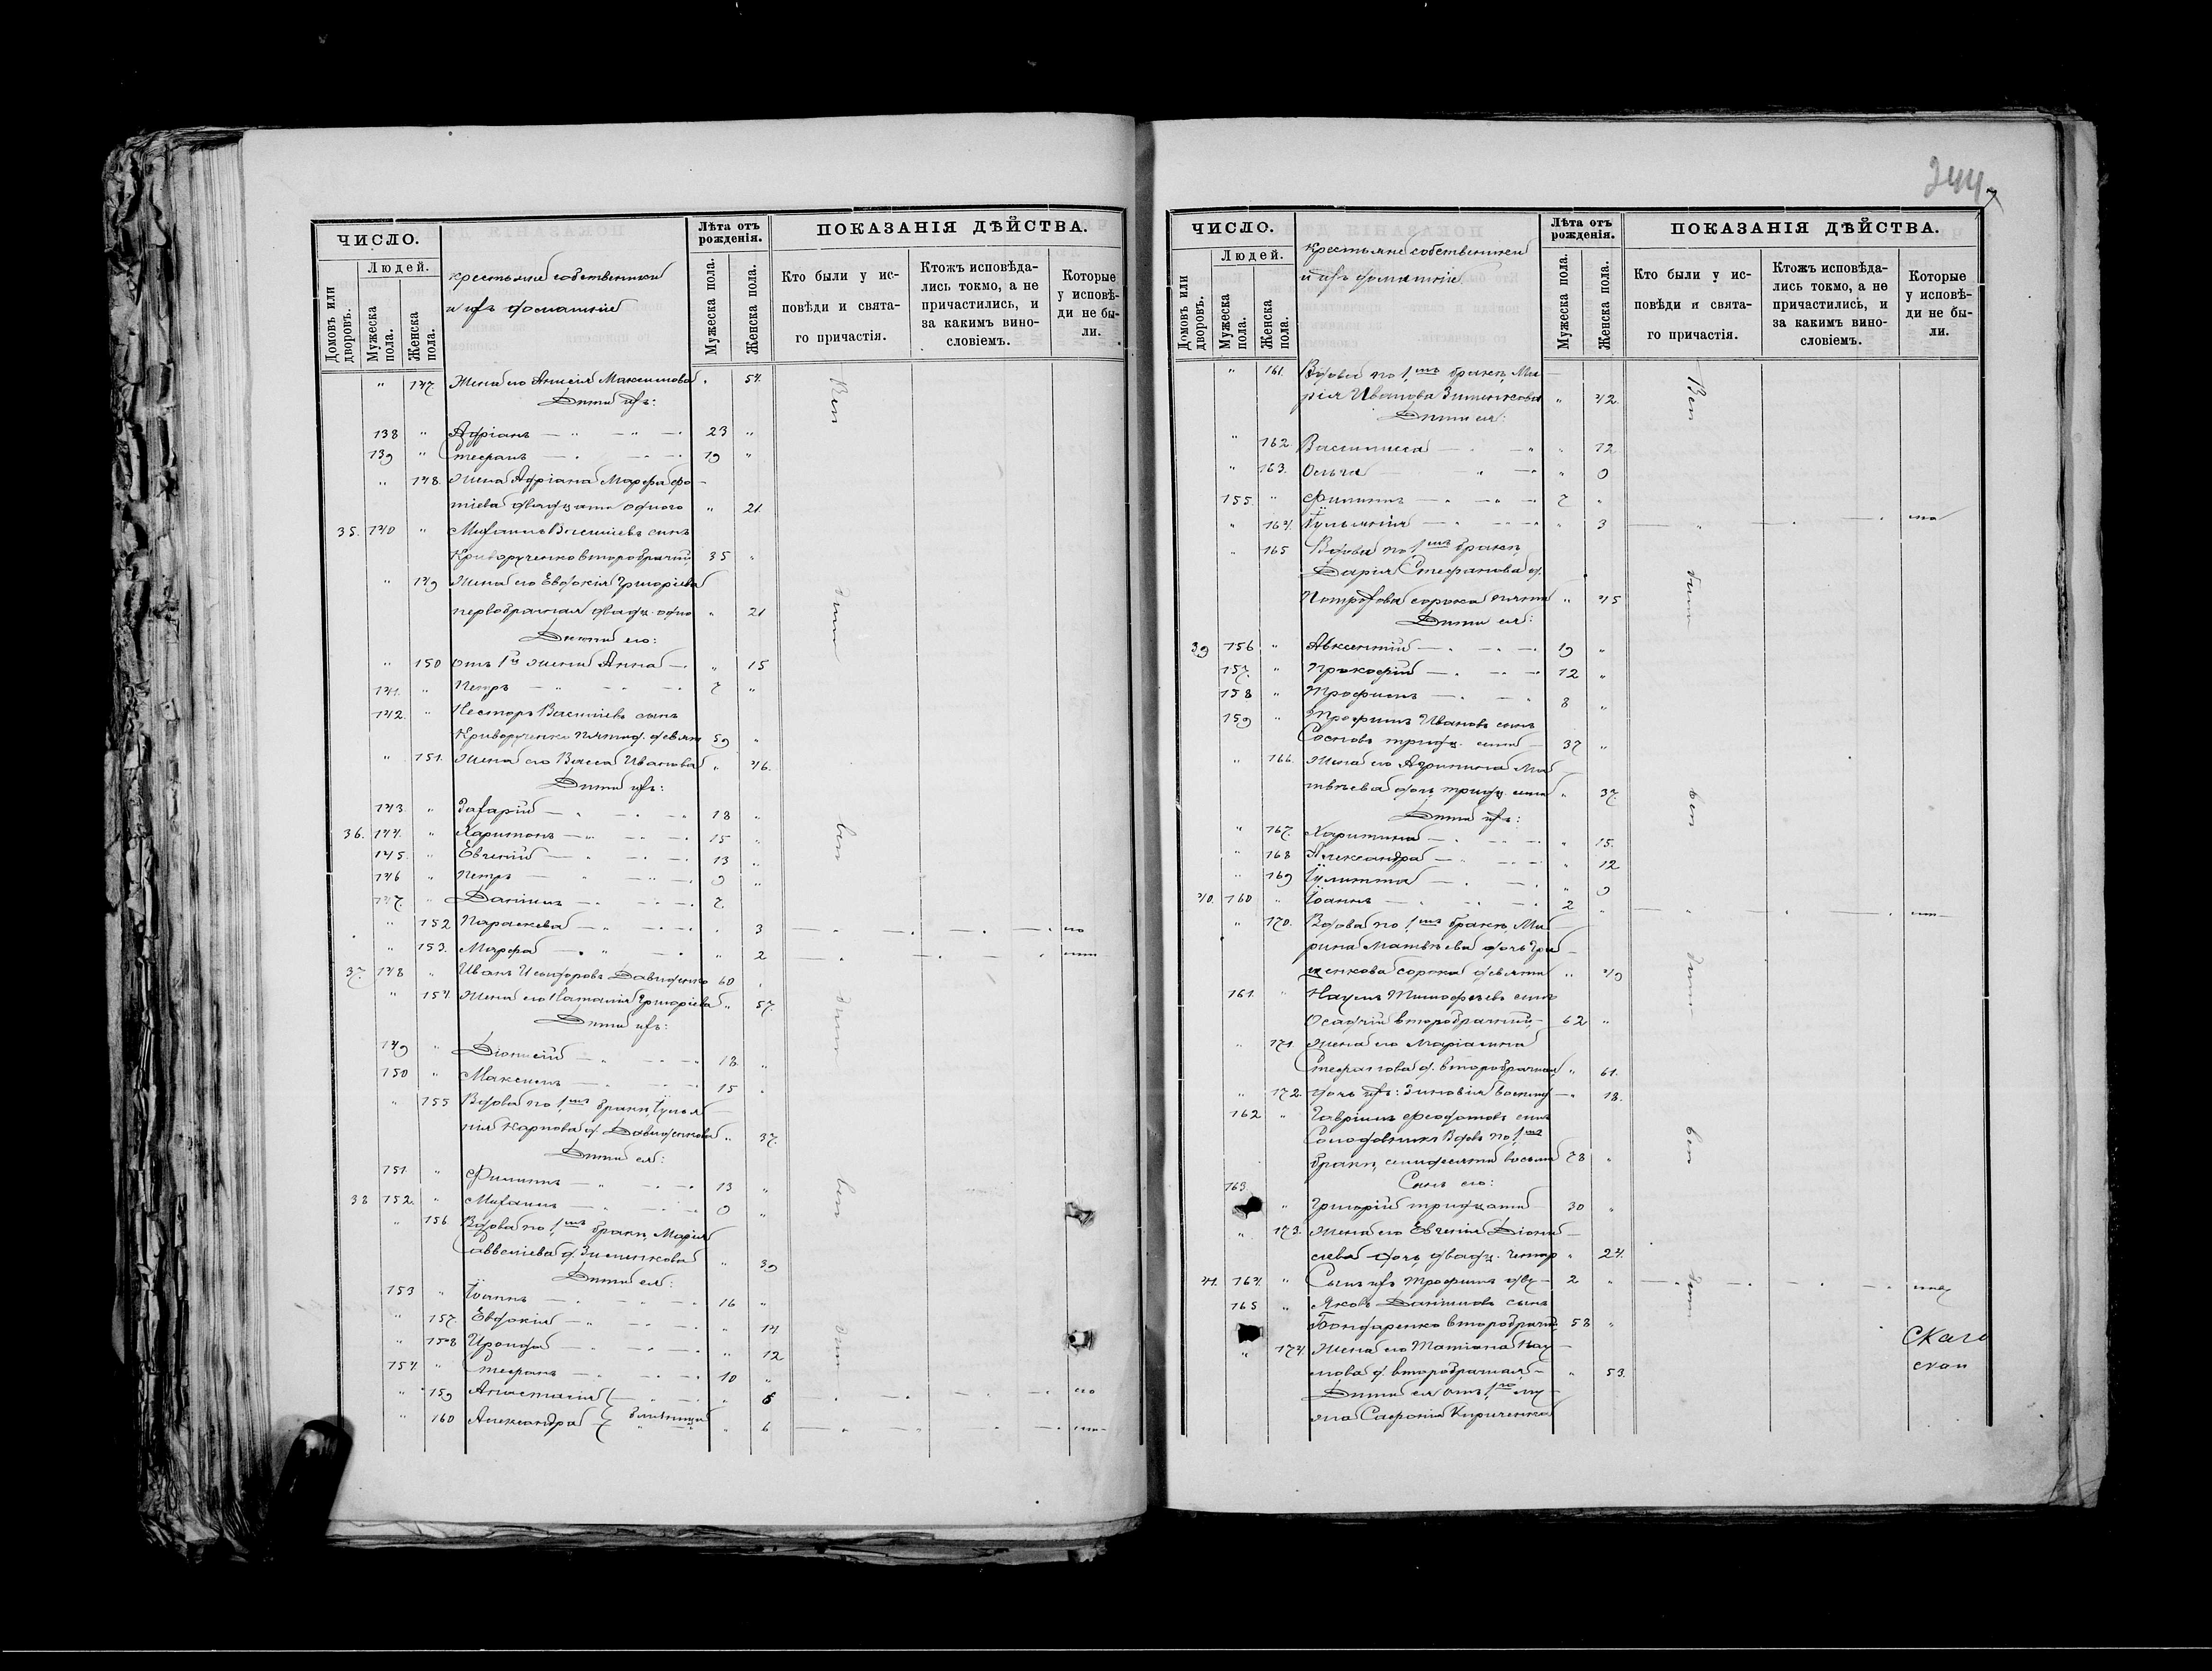 244
ЧИСЛО.
Людей.
Домовъ или дворовъ.
Мужеска пола.
Женска пола.
Крестьяне собственники
и ихъ домашніе
Лѣта отъ рожденія.
Мужеска пола.
Женска пола.
ПОКАЗАНІЯ ДѢЙСТВА.
Кто были у исповѣди и святаго причастія.
Ктожъ исповѣдались токмо, а не причастились, и за какимъ винословіемъ.
Которые у исповѣди не были.
" 147. Жена его Анисія Максимова " 54.
Дѣти ихъ:
138 " Адріанъ — " — " — 23 "
139 " Стефанъ — " — 19 "
" 148. Жена Адріана Марфа Фо-
тіева двадцати одного " 21.
35. 140 " Михаилъ Василіевъ сынъ
Криворученко второбрачный 35 "
" 149 Жена его Евдокія Григоріева
первобрачная двадц. одно " 21
Дѣти его:
" 150 Отъ 1й жены Анна — " 15
141. " Петръ — " — 7 "
142. " Несторъ Василіевъ сынъ
Криворученко пятид. девять 59 "
" 151. Жена его Васса Иванова " 46.
Дѣти ихъ:
143 " Захарій — " — 18 "
36. 144. " Харитонъ — " — 15 "
145. " Евгеній — " — 13 "
146 " Петръ — " — 9 "
147. " Даніилъ — " — 7.
" 152 Параскева — " — " 3
" 153. Марфа — " — " 2
37. 148 " Иванъ Исидоровъ Давиденко 60
" 154. Жена его Наталія Григоріева " 57.
Дѣти ихъ:
149 " Діонисій — " — 18. "
150 " Максимъ — " — 15
" 155 Вдова по 1мъ бракѣ Іулья-
нія Карпова д. Давиденкова " 37.
Дѣти ея:
151. " Филиппъ — " — 13 "
38 152. " Михаилъ — " — 9 "
" 156 Вдова по 1мъ бракѣ Марія
Савветіева д. Зименкова " 39
Дѣти ея:
153 " Іоаннъ — " — 16 "
" 157. Евдокія — " — " 14
" 158 Ираида — " — " 12
154. " Стефанъ — " — 10 "
" 159 Анастасія " 6
" 160 Александра близницы " 6
Вси были вси были вси были
ЧИСЛО.
Людей.
Домовъ или дворовъ.
Мужеска пола.
Женска пола.
Крестьяне собственники
и ихъ домашніе
Лѣта отъ рожденія.
Мужеска пола.
Женска пола.
ПОКАЗАНІЯ ДѢЙСТВА.
Кто были у исповѣди и святаго причастія.
Ктожъ исповѣдались токмо, а не причастились, и за какимъ винословіемъ.
Которые у исповѣди не были.
" 161. Вдова по 1мъ бракѣ Ма-
рія Иванова Зименкова " 42.
Дѣти ея:
" 162. Василисса — " — " 12
" 163. Ольга — " — " 9
155. " Филиппъ — " — 7 "
" 164. Іульянія — " — " 3
" 165 Вдова по 1мъ бракѣ
Дарія Стефанова д.
сорока пяти " 45
Дѣти ея:
39 156 " Авксентій — " — 19 "
157. " Прокофій — " — 12 "
158 " Трофимъ — " — 8 "
159 " Трофимъ Ивановъ сынъ
Сосновъ тридц. семи — 37 "
" 166. Жена его Агрипина Ма-
твѣева дочь тридц. семи " 37.
Дѣти ихъ:
" 167. Харитина — " — " 15.
" 168 Александра — " — " 12
" 169 Іулитта — " — " 9
40. 160 " Іоаннъ — " — 2 "
" 170. Вдова по 1мъ бракѣ Ма-
рина Матвѣева дочь Гри-
щенкова сорока девяти " 49
161. " Наумъ Тимофѣевъ сынъ
Осадчій второбрачный — 62 "
" 171. Жена его Маріамна
Стефанова д. второбрачная " 61.
" 172. Дочь ихъ: Зиновія — " 18.
162 " Гавріилъ Феодотовъ сынъ
Солодовникъ Вдовъ по 1мъ
бракѣ семидесяти восьми 78 "
Сынъ его:
163. " Григорій тридцати 30 "
" 173. Жена его Евгенія Діони-
сіева дочь двадц. четыр " 24.
41. 164. " Сынъ ихъ Трофимъ двух — 2 "
165 " Яковъ Даніиловъ сынъ
Бондаренко второбрачн. 58 "
" 174. Жена его Татіана Нау-
мова д. второбрачная — " 53.
Дѣти ея отъ 1го му-
жа Сафонія Кириченка
Вси были вси были вси были